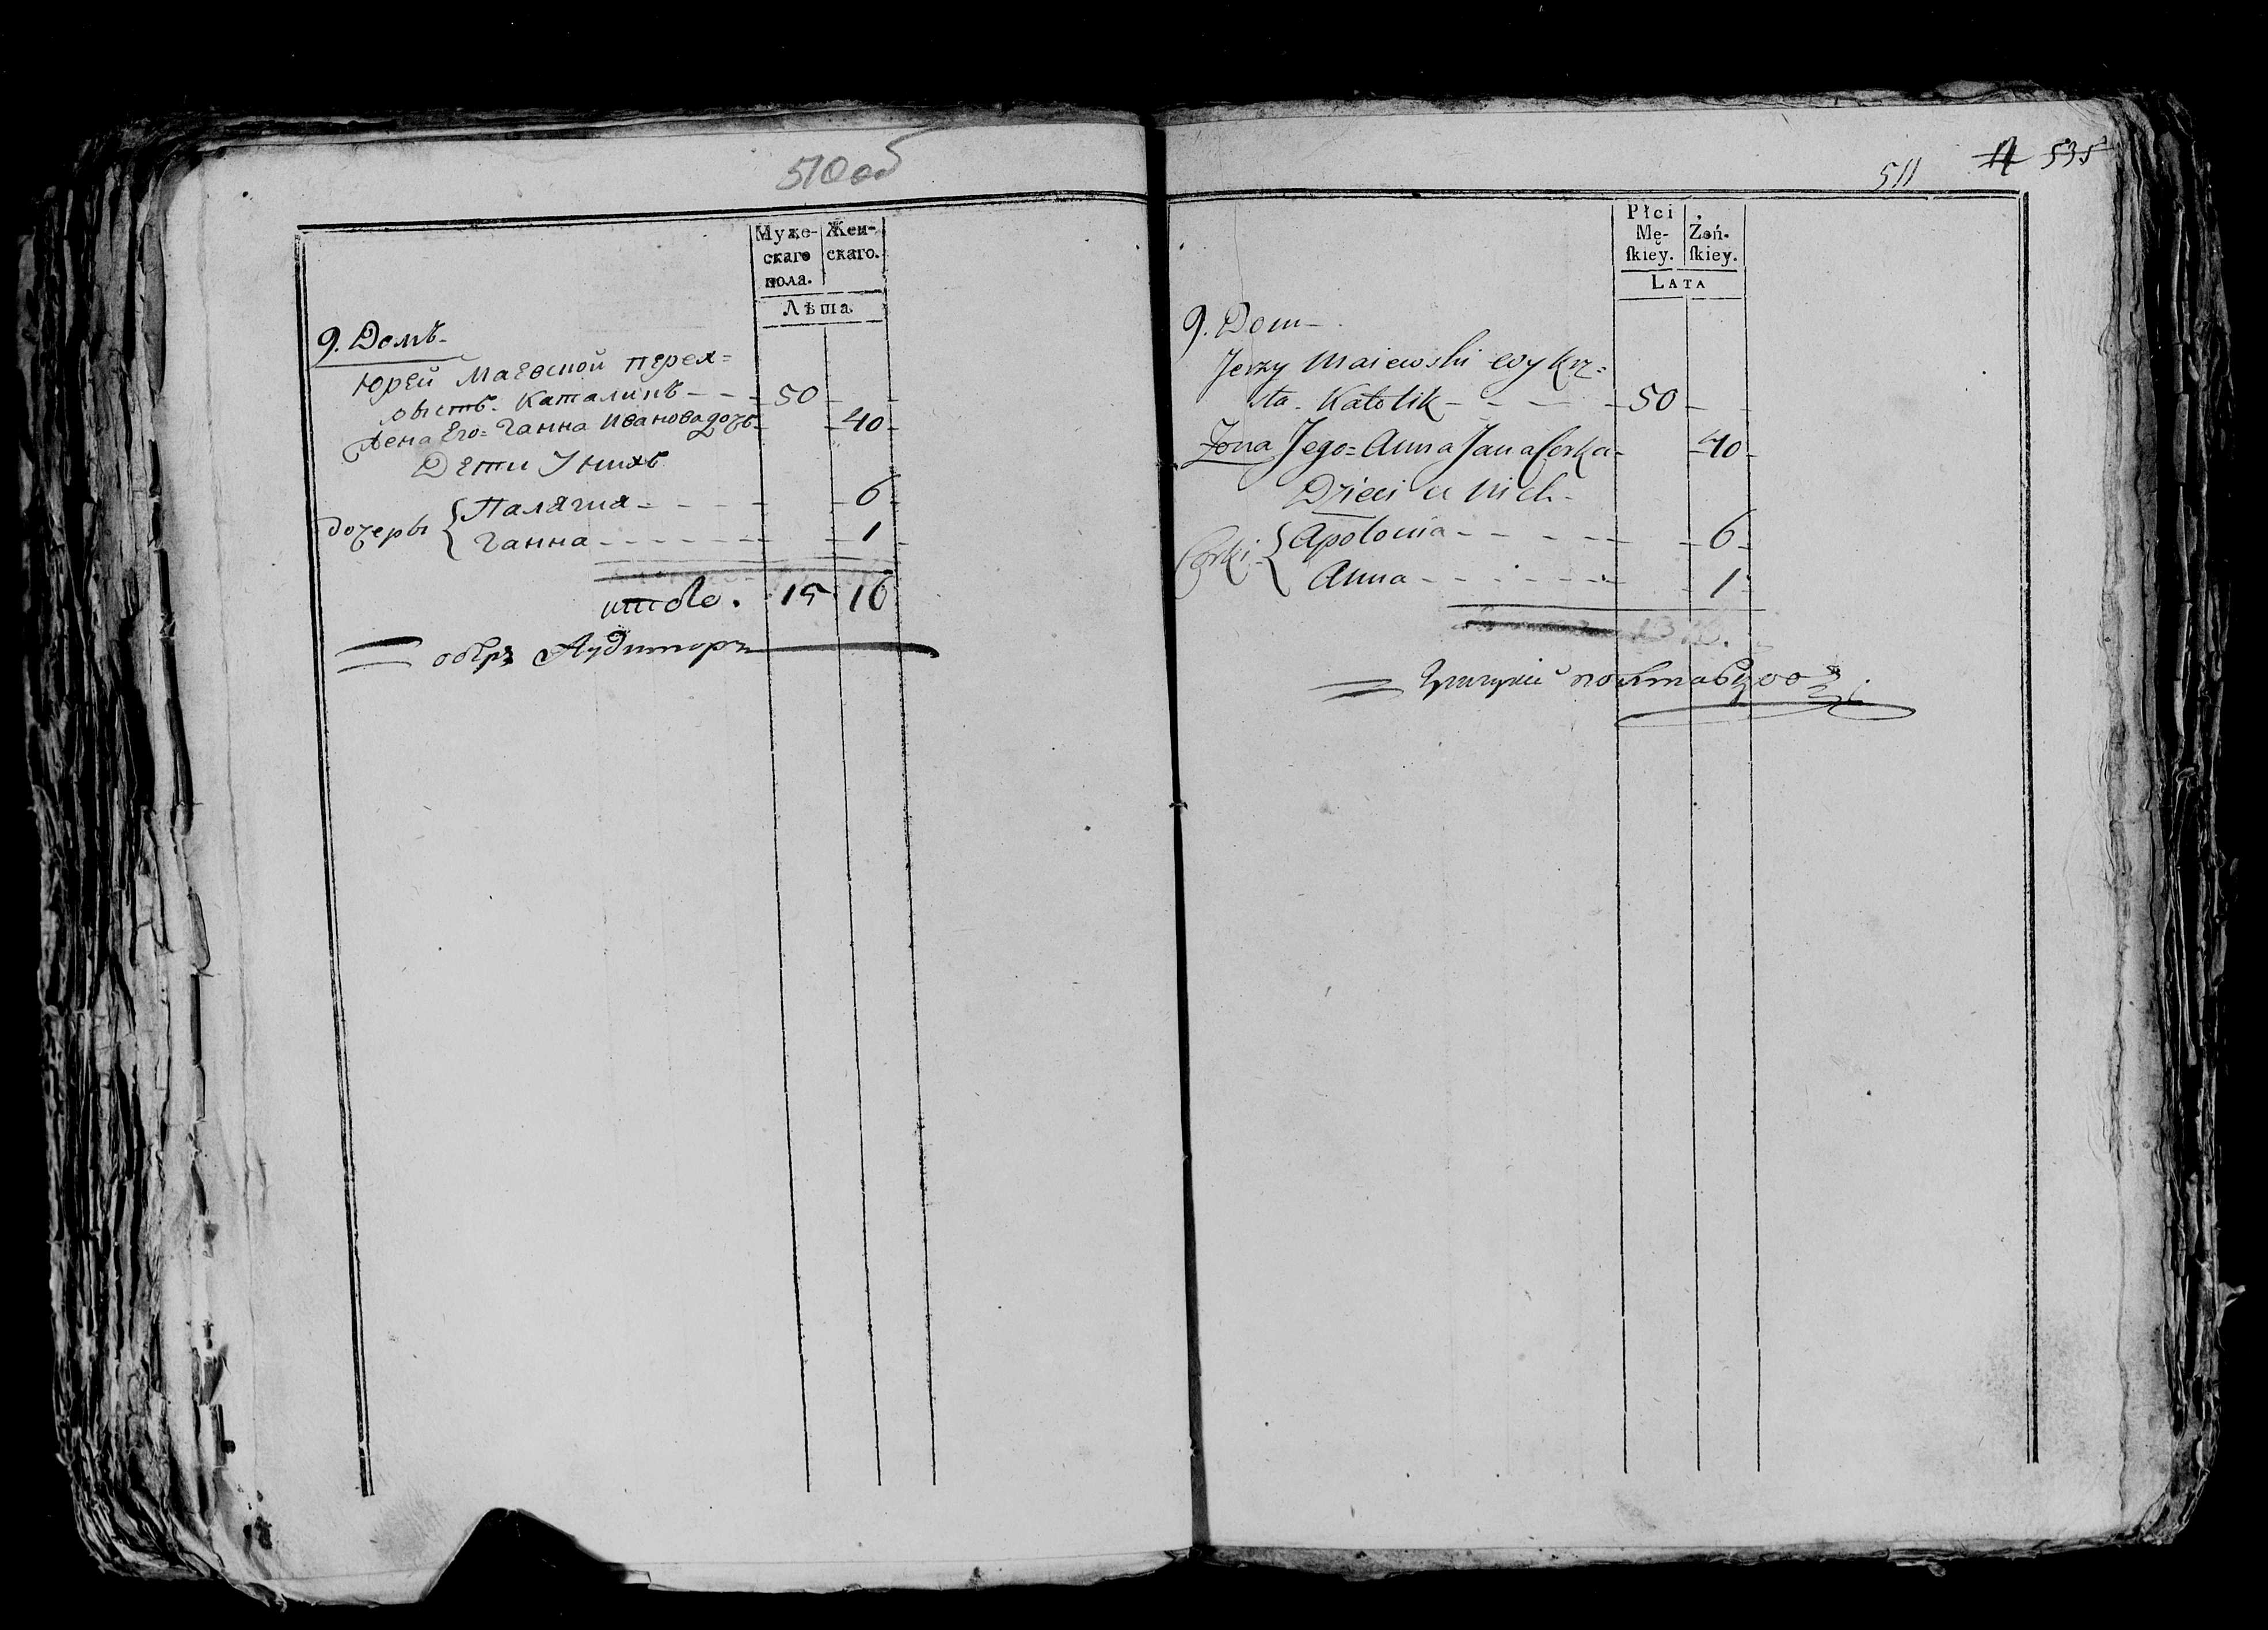 510 об
Муже-
скаго
пола.
Жен-
скаго.
Лѣта.
9. Домъ.
Юрей Маевской перех=
рыстъ. Католикъ - - - 50
Жена Его= Ганна Иванова дочь - 40
Дети У нихъ
дочеры { Палягиа - - - - 6
Ганна - - - - - - 1
итого. 15 16
Аудиторъ
511 11 535
Płci
Mę-
ſkiey.
Żeń-
ſkiey.
LATA
9. Dom -
Jerzy Maiewski wykrz=
ta. Katolik - - - - 50
Zona Jego= Anna Jana Corka - 40
Dzieci u nich -
Corki { Apolonia - - - - - 6
Anna - - - - - - 1